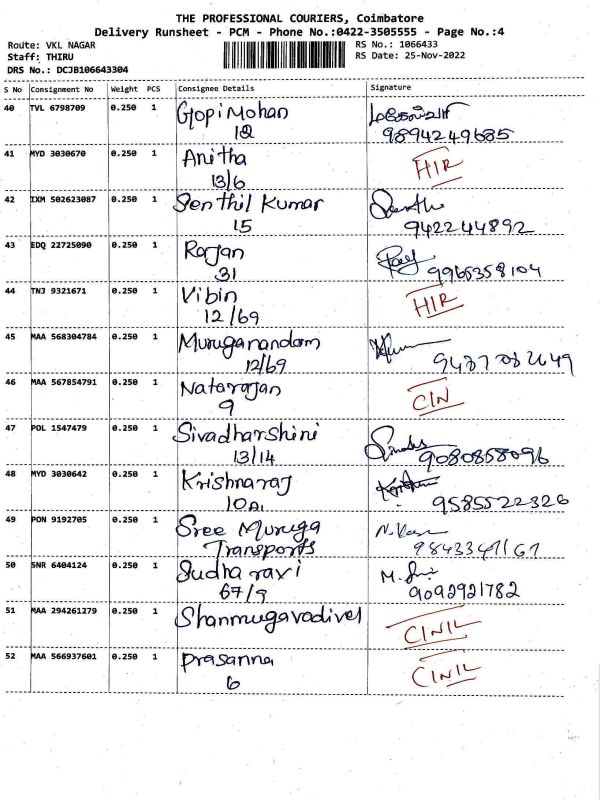 THE PROFESSIONAL COURIERS, Coimbatore
Delivery Runsheet - PCM - Phone No.:0422-3505555 - Page No.:4
Route: VKL NAGAR
RS No.: 1066433
Staff: THIRU
RS Date: 25-Nov-2022
DRS No.: DCJB106643304
S No Consignment No Weight PCS Consignee Details Signature
40 TVL 6798709 0.250 1 Gopi Mohan
9894249685
41 MYD 3030670 0.250 1 Anitha HIR
13/6
42 IXM 502623087 0.250 1 Senthil Kumar
15 942244892
43 EDQ 22725090 0.250 1 Rajan
31 9965358104
44 TNJ 9321671 0.250 1 Vibin HIR
12/69
45 MAA 568304784 0.250 1 Muruganandam
12/69
46 MAA 567854791 0.250 1 Natarajan CIN
9
47 POL 1547479 0.250 1 Sivadharshini
13/14 9080858096
48 MYD 3030642 0.250 1 Krishnaraj
10A1 9585522326
49 PON 9192705 0.250 1 Sree Muruga
Transports
50 SNR 6404124 0.250 1 Sudha ravi
67/9 9092921782
51 MAA 294261279 0.250 1 Shanmugavadivel CINIL
52 MAA 566937601 0.250 1 Prasanna CINIL
6